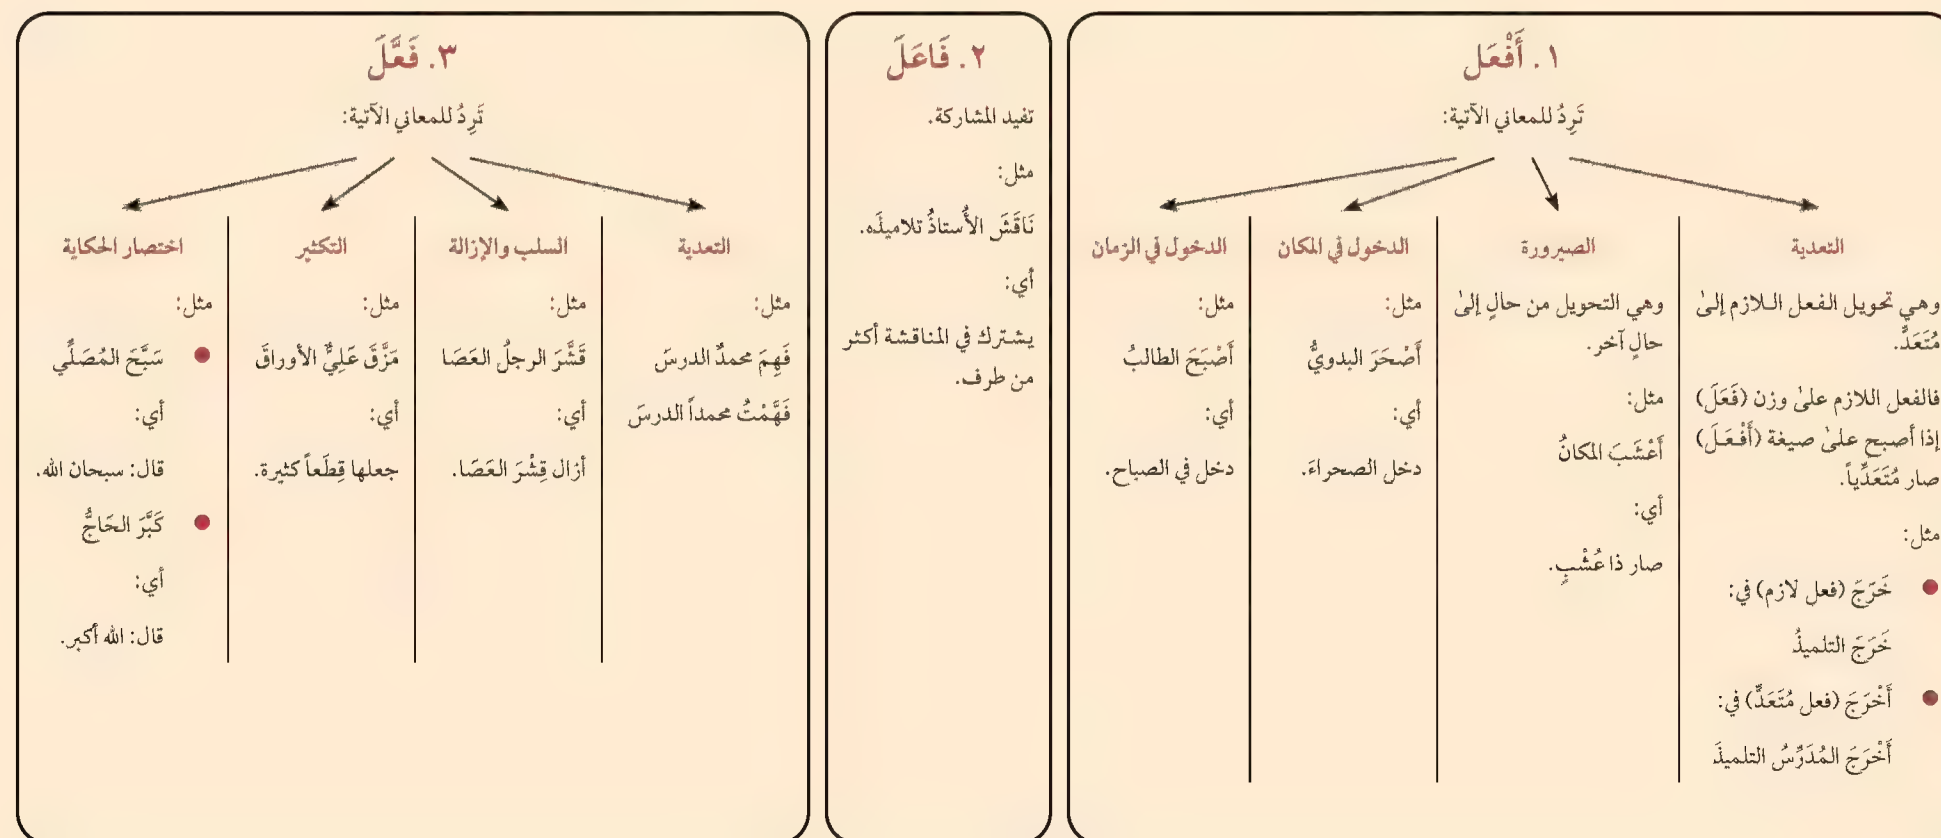 ١. أَفْعَل
تَرِدُ للمعاني الآتية:
التعدية
وهي تحويل الفعل اللازم إلىٰ
مُتَعَدٍّ.
فالفعل اللازم علىٰ وزن (فَعَلَ)
إذا أصبح علىٰ صيغة (أَفْعَلَ)
صار مُتَعَدِّياً.
مثل:
خَرَجَ (فعل لازم) في:
خَرَجَ التلميذُ
أَخْرَجَ (فعل مُتَعَدٍّ) في:
أَخْرَجَ المُدَرِّسُ التلميذَ
الصيرورة
وهي التحويل من حالٍ إلىٰ
حالٍ آخر.
مثل:
أَعْشَبَ المكانُ
أي:
صار ذا عُشْبٍ.
الدخول في المكان
مثل:
أَصْحَرَ البدويُّ
أي:
دخل الصحراءَ.
الدخول في الزمان
مثل:
أَصْبَحَ الطالبُ
أي:
دخل في الصباح.
٢. فَاعَلَ
تفيد المشاركة.
مثل:
نَاقَشَ الأُستاذُ تلاميذَه.
أي:
يشترك في المناقشة أكثر
من طرف.
٣. فَعَّلَ
تَرِدُ للمعاني الآتية:
التعدية
مثل:
فَهِمَ محمدٌ الدرسَ
فَهَّمْتُ محمداً الدرسَ
السلب والإزالة
مثل:
قَشَّرَ الرجلُ العَصَا
أي:
أزال قِشْرَ العَصَا.
التكثير
مثل:
مَزَّقَ عَلِيٌّ الأوراقَ
أي:
جعلها قِطَعاً كثيرة.
اختصار الحكاية
مثل:
سَبَّحَ المُصَلِّي
أي:
قال: سبحان الله.
كَبَّرَ الحَاجُّ
أي:
قال: الله أكبر.